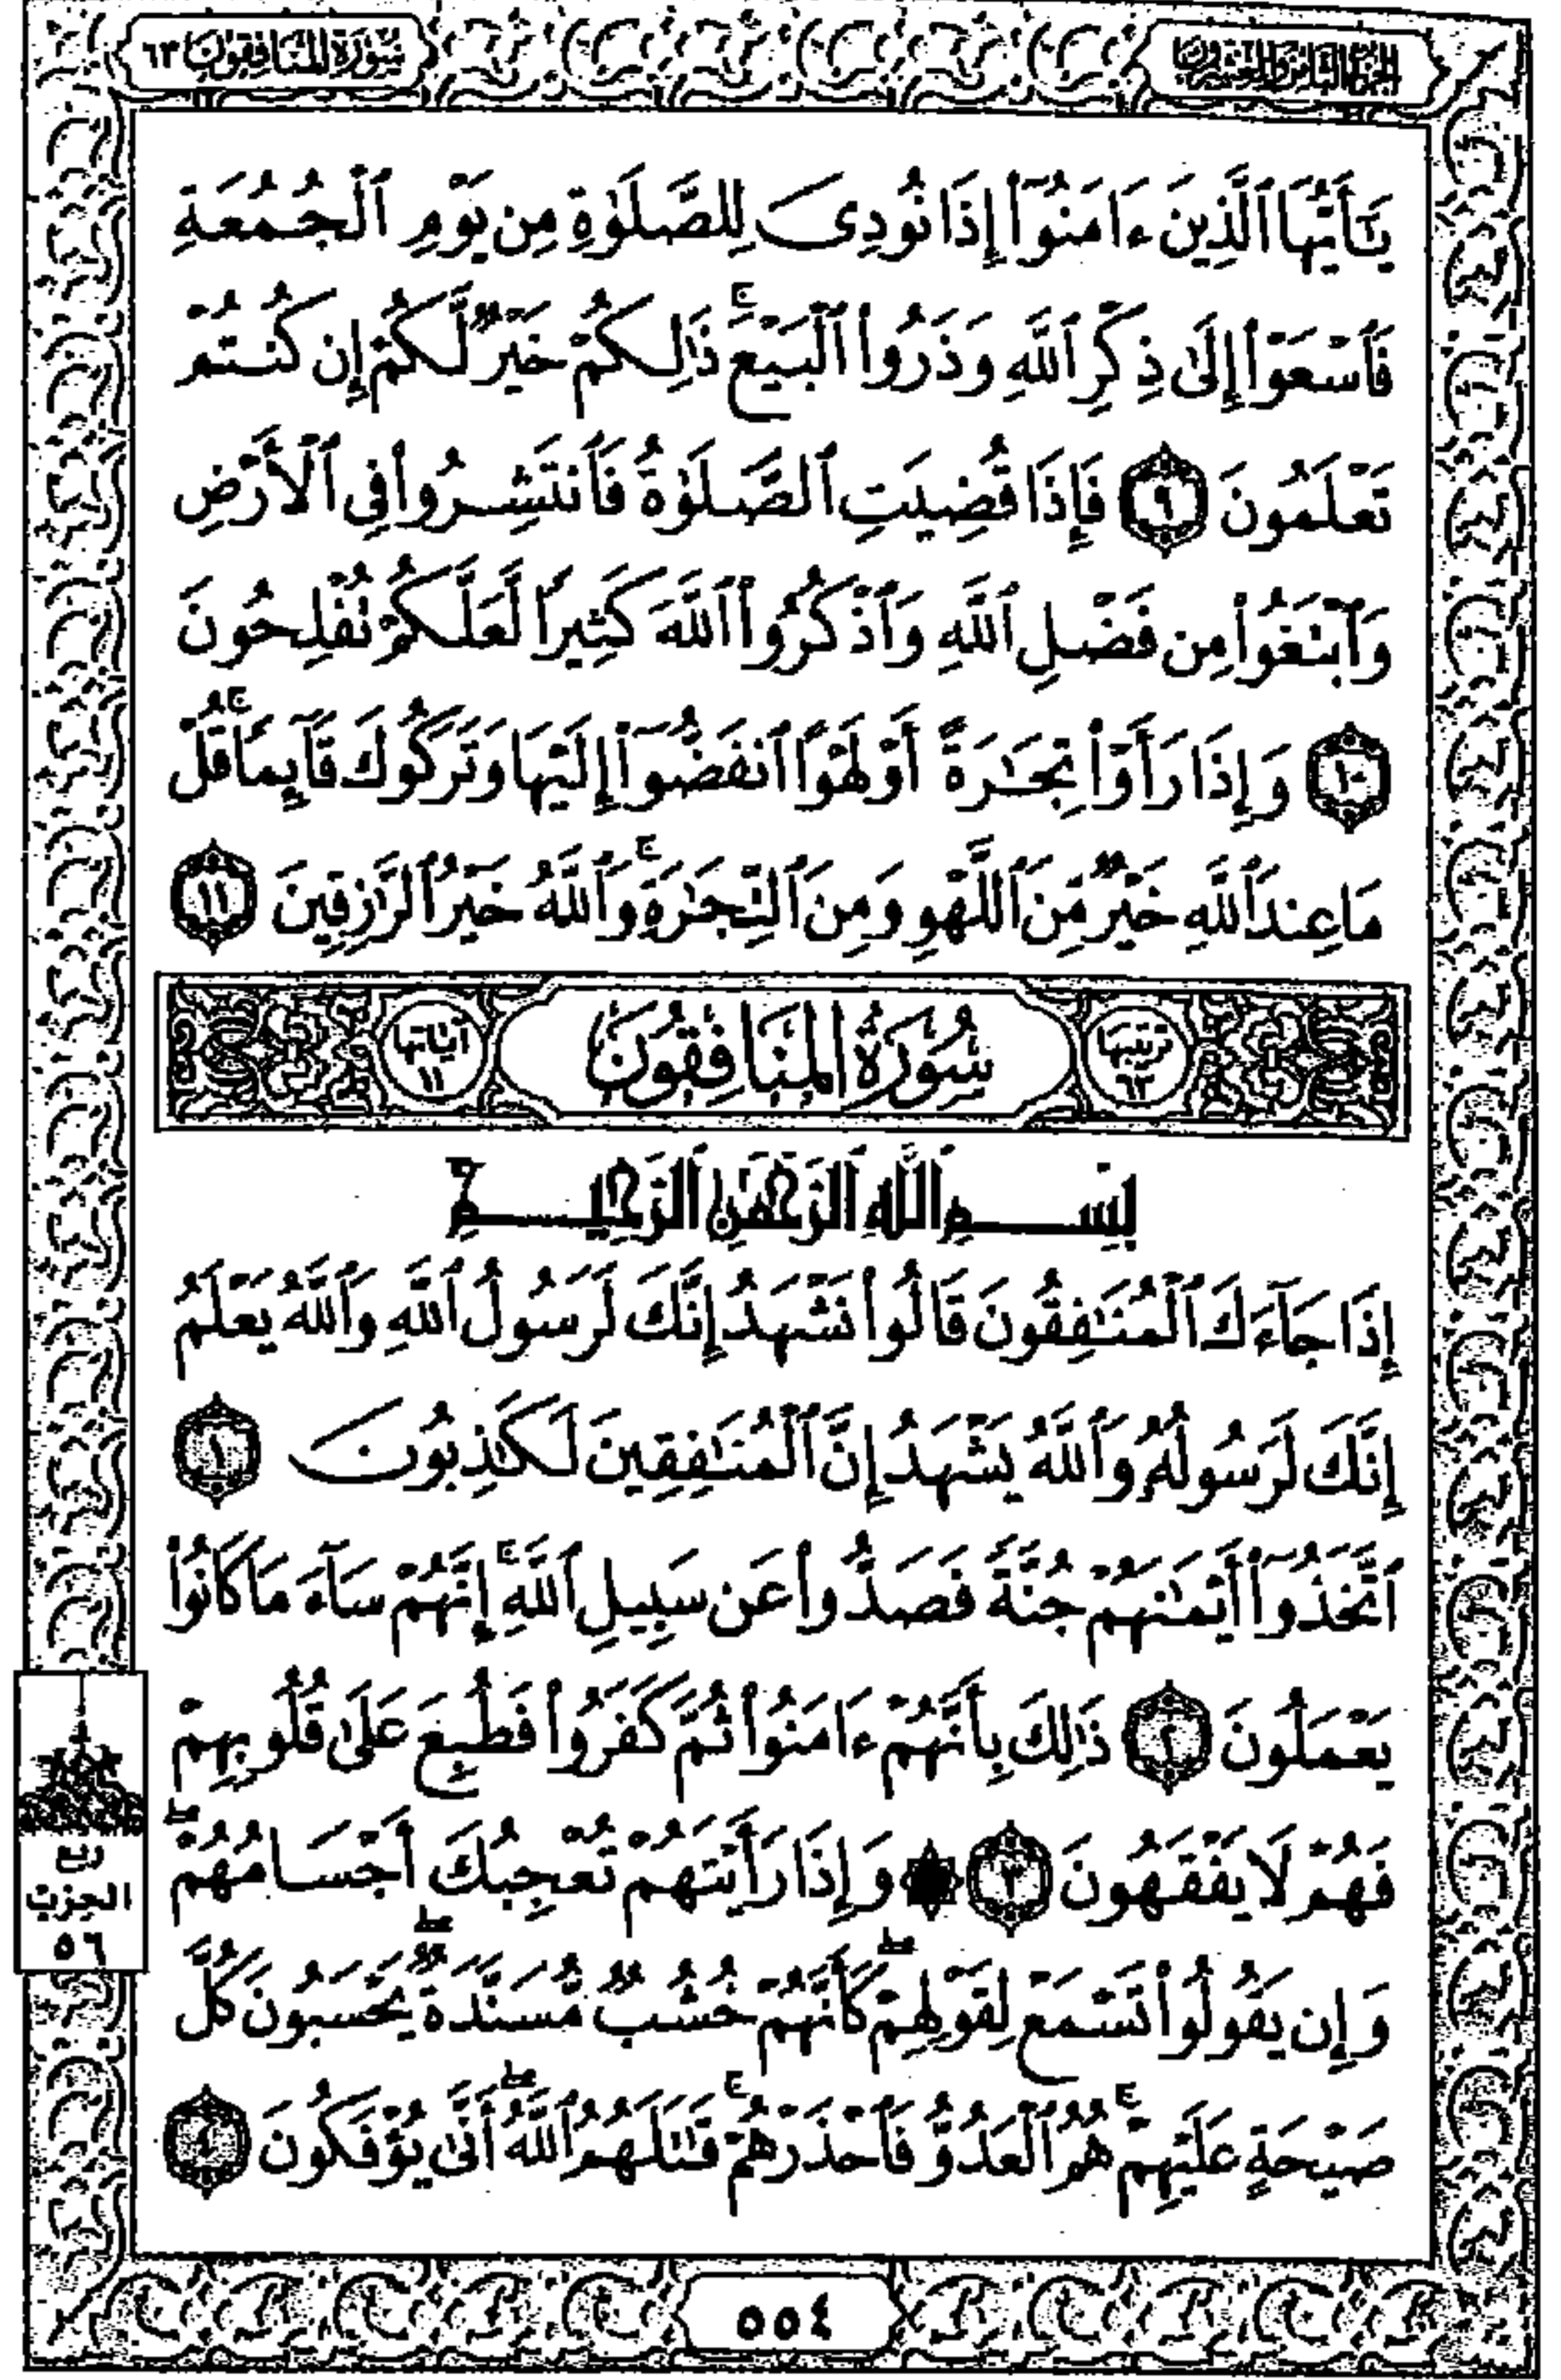 الجزء الثامن والعشرون
سورة المنافقون ٦٣
يَٰٓأَيُّهَا ٱلَّذِينَ ءَامَنُوٓا۟ إِذَا نُودِىَ لِلصَّلَوٰةِ مِن يَوْمِ ٱلْجُمُعَةِ
فَٱسْعَوْا۟ إِلَىٰ ذِكْرِ ٱللَّهِ وَذَرُوا۟ ٱلْبَيْعَ ۚ ذَٰلِكُمْ خَيْرٌ لَّكُمْ إِن كُنتُمْ
تَعْلَمُونَ ٩ فَإِذَا قُضِيَتِ ٱلصَّلَوٰةُ فَٱنتَشِرُوا۟ فِى ٱلْأَرْضِ
وَٱبْتَغُوا۟ مِن فَضْلِ ٱللَّهِ وَٱذْكُرُوا۟ ٱللَّهَ كَثِيرًا لَّعَلَّكُمْ تُفْلِحُونَ
١٠ وَإِذَا رَأَوْا۟ تِجَٰرَةً أَوْ لَهْوًا ٱنفَضُّوٓا۟ إِلَيْهَا وَتَرَكُوكَ قَآئِمًا ۚ قُلْ
مَا عِندَ ٱللَّهِ خَيْرٌ مِّنَ ٱللَّهْوِ وَمِنَ ٱلتِّجَٰرَةِ ۚ وَٱللَّهُ خَيْرُ ٱلرَّٰزِقِينَ ١١
ترتيبها ٦٣ سُورَةُ المنَافِقُونَ آياتها ١١
بِسْمِ ٱللَّهِ ٱلرَّحْمَٰنِ ٱلرَّحِيمِ
إِذَا جَآءَكَ ٱلْمُنَٰفِقُونَ قَالُوا۟ نَشْهَدُ إِنَّكَ لَرَسُولُ ٱللَّهِ وَٱللَّهُ يَعْلَمُ
إِنَّكَ لَرَسُولُهُۥ وَٱللَّهُ يَشْهَدُ إِنَّ ٱلْمُنَٰفِقِينَ لَكَٰذِبُونَ ١
ٱتَّخَذُوٓا۟ أَيْمَٰنَهُمْ جُنَّةً فَصَدُّوا۟ عَن سَبِيلِ ٱللَّهِ ۚ إِنَّهُمْ سَآءَ مَا كَانُوا۟
يَعْمَلُونَ ٢ ذَٰلِكَ بِأَنَّهُمْ ءَامَنُوا۟ ثُمَّ كَفَرُوا۟ فَطُبِعَ عَلَىٰ قُلُوبِهِمْ
فَهُمْ لَا يَفْقَهُونَ ٣ ۞ وَإِذَا رَأَيْتَهُمْ تُعْجِبُكَ أَجْسَامُهُمْ ۖ
وَإِن يَقُولُوا۟ تَسْمَعْ لِقَوْلِهِمْ ۖ كَأَنَّهُمْ خُشُبٌ مُّسَنَّدَةٌ ۖ يَحْسَبُونَ كُلَّ
صَيْحَةٍ عَلَيْهِمْ ۚ هُمُ ٱلْعَدُوُّ فَٱحْذَرْهُمْ ۚ قَٰتَلَهُمُ ٱللَّهُ ۖ أَنَّىٰ يُؤْفَكُونَ ٤
ربع
الحزب
٥٦
٥٥٤